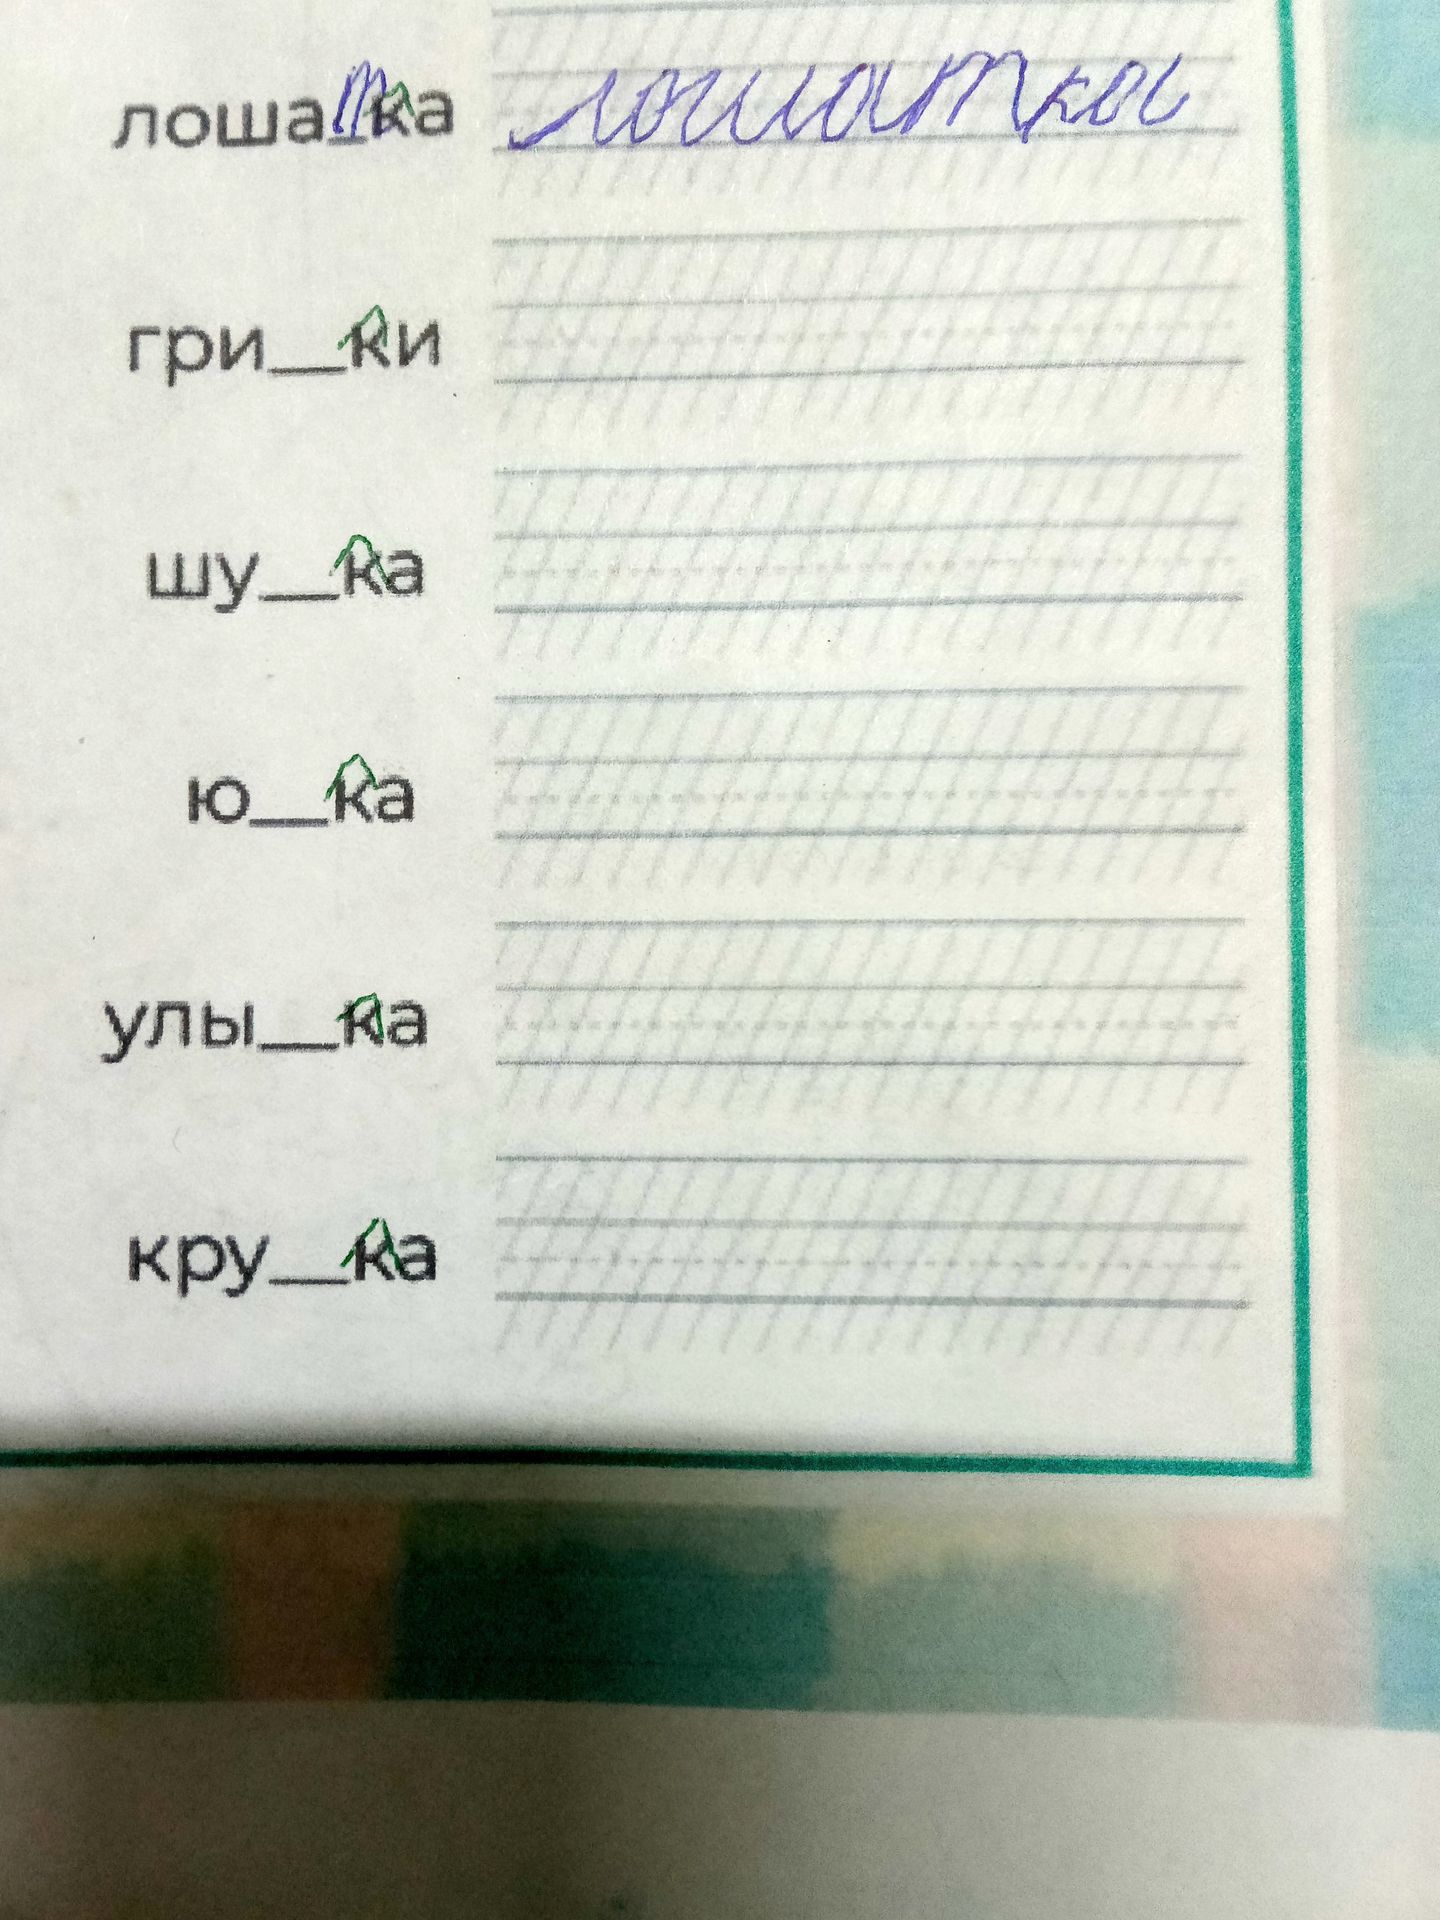 лошатка лошатка
гри__ки
шу__ка
ю__ка
улы__ка
кру__ка